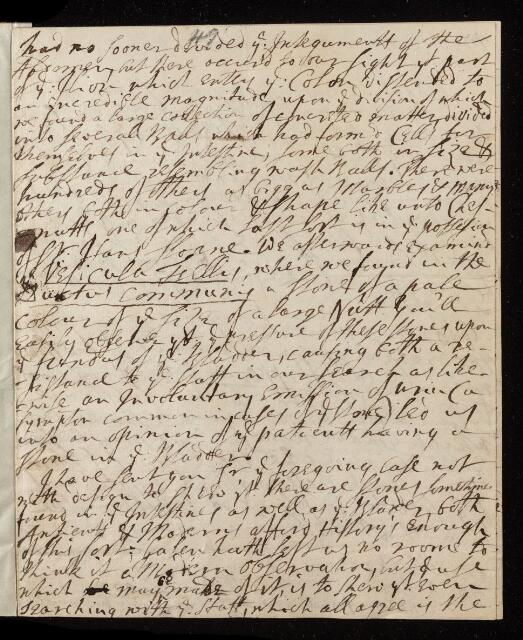 42
had no sooner divided ye Integuments of the
Abdomen but there occurd to our sight yt part
of ye Ilion which enters ye Colon distended to
an incredible magnitude upon ye division of which
we found a large collection of concreted matter divided
into several Balls which had form'd Cells for
themselves in ye Intestine, some both in size &
substance resembling wash Balls. There were
hundreds of others as bigg as Marbles & many
others both in colour & shape like unto Ches-
nutts, one of which last sort is in ye possession
of Sr. Hans Sloane. We afterwards examined
ye Vesicula Fellis, where we found in the
Ductus Communis a stone of a pale
colour of ye size of a large Nutt you'll
easily observe yt ye pressure of these stones upon
ye fundus of ye Bladder, causing both a re-
sistance to ye staff in our search as like-
wise an Involuntary Emission of urin (a
symptom common in cases of stone) led us
into an opinion of ye patients having a
stone in ye Bladder.
I have sent you Sr. ye foregoing case not
with design to shew yt there are stones sometymes
found in ye Intestines as well as ye Bladder both
Ancients & Moderns afford History's Enough
of this sort; hath left us no roome to
think it a Modern observation, but ye use
which may be made of it, is to shew yt Even
searching with ye staff, which all agree is the